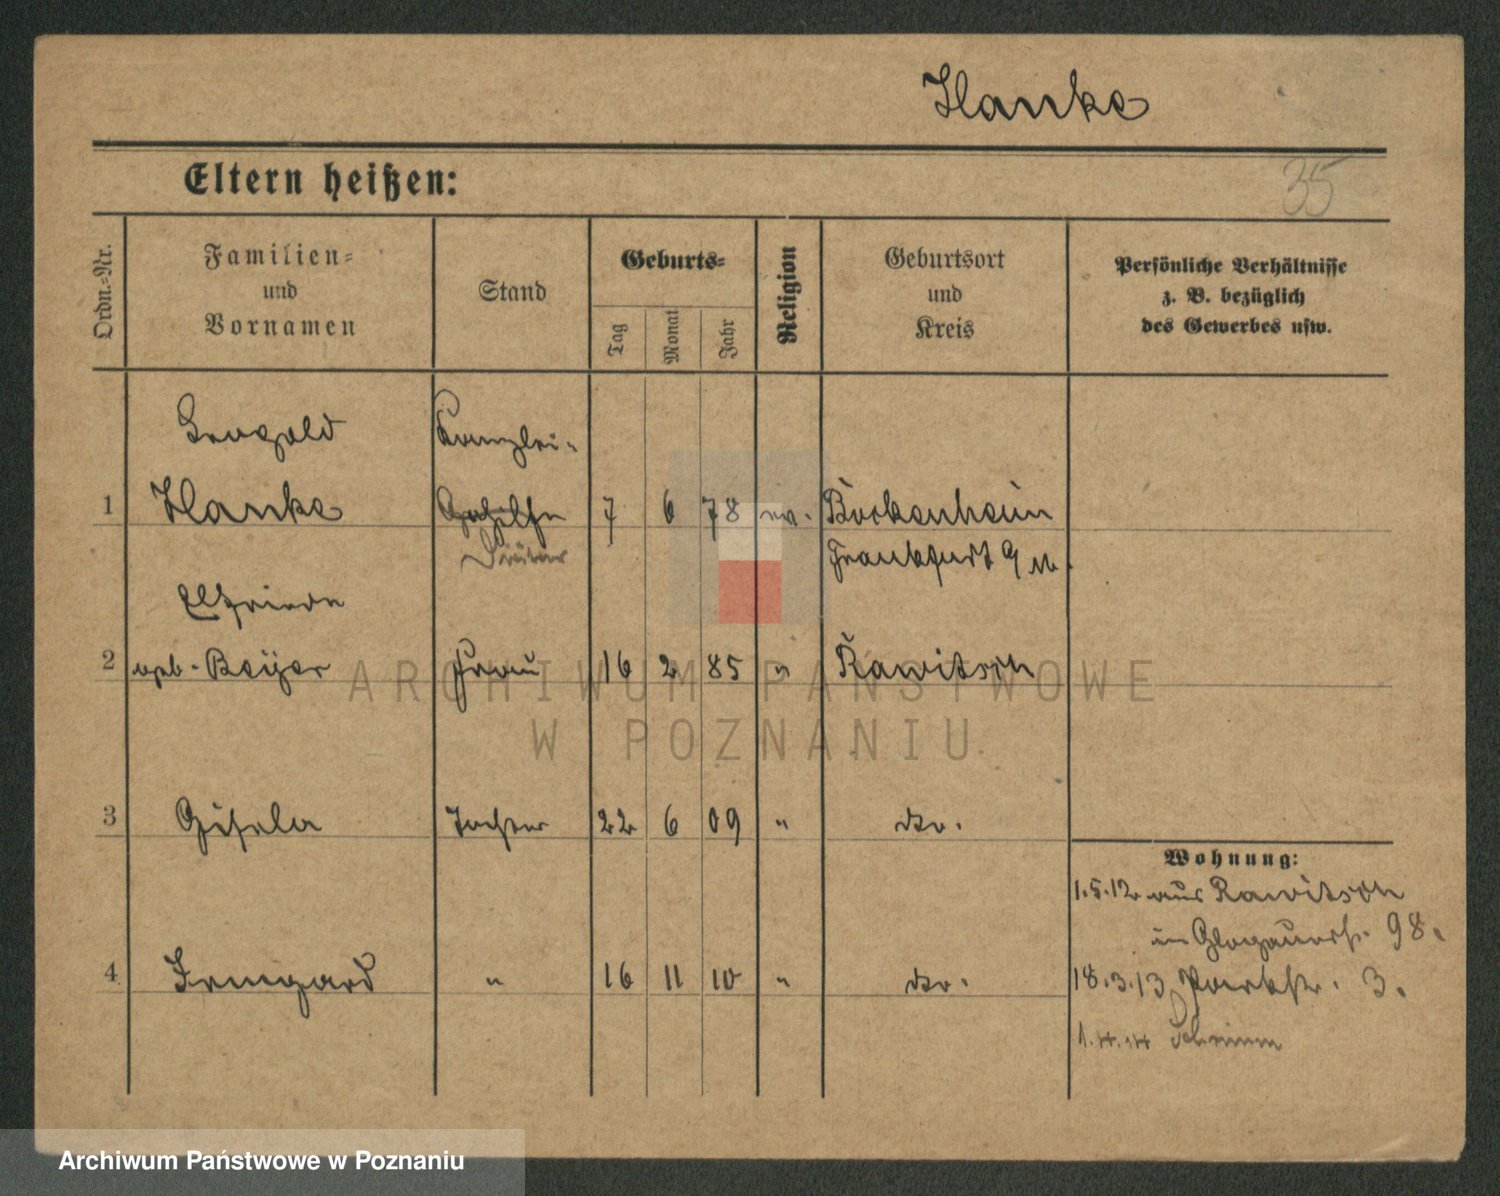 Hanke
Eltern heißen:
35
Ordn.-Nr.
Familien-
und
Vornamen
Stand
Geburts-
Tag
Monat
Jahr
Religion
Geburtsort
und
Kreis
Persönliche Verhältnisse
z. B. bezüglich
des Gewerbes usw.
Leopold Kanzlei-
1 Hanke Gehilfe 7 6 78 ev. Bockenheim
Frankfurt a M.
Elfriede
2 geb. Beÿer Frau 16 2 85 " Rawitsch
3 Gisela Tochter 22 6 09 " dto.
Wohnung:
1.5.12 aus Rawitsch
in Glogauerstr. 98.
4 Irmgard " 16 11 10 " dto.
18.3.13 Parkstr. 3.
1.4.14 Schrimm
ARCHIWUM PAŃSTWOWE
W POZNANIU
Archiwum Państwowe w Poznaniu